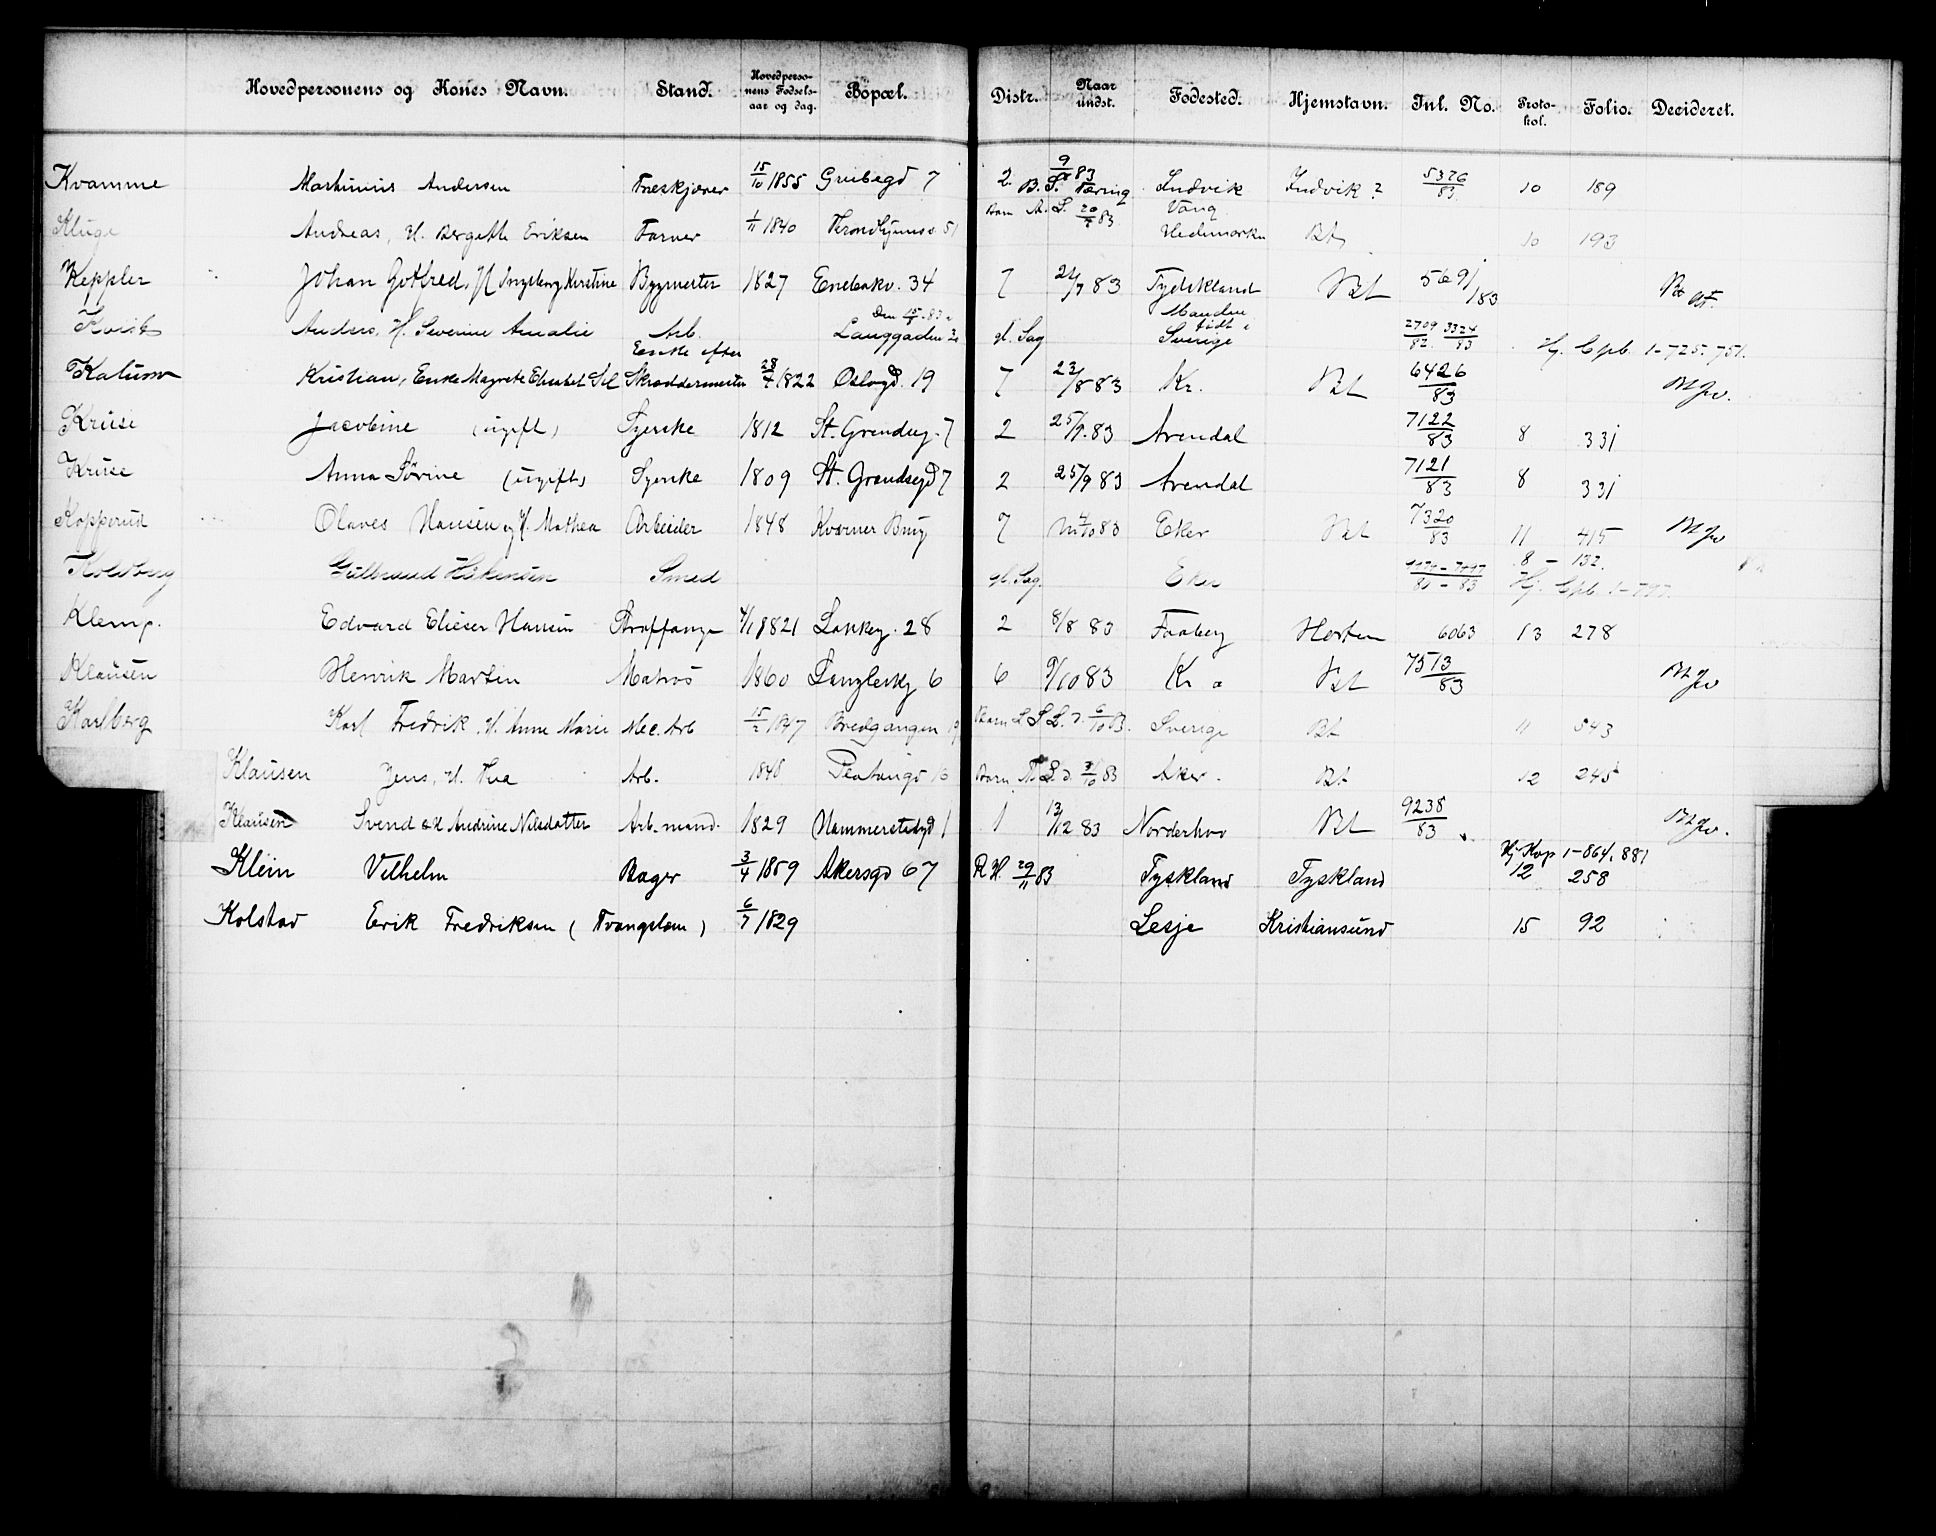 Hovedpersonens og Kones Navn. Stand. Hovedpersonens Fødselsaar og dag. Bopæl. Distr. Naar undst. Fødested. Hjemstavn. Inl. No. Protokol. Folio. Decideret.
Kvamme Martinius Andersen 15/10 1855 Grubegd 7 2 9/8 83 Indvik Indvik? 5376/83 10 189
B. S. Næring
Kluge Andreas, H. Bergethe Eriksen Farver 1/11 1840 Throndhjemsv. 51 Barn A. S. 20/7 83 Vang Hedemarken Bt 10 193
Keppler Johan Gotfred, H Ingeborg Kirstine Bygmester 1827 Enebakv. 34 7 21/7 83 Tydskland Bt 5691/83 Bt
Kvist Anders, H. Severine Amalie Arb. Langgaden gl. Sag Manden født i Sverige 2709/82 3324/83 Hj. Cpb. 1-725. 751.
Kristian, Enke Magrete Elisabet Enke efter Skræddermester 28/4 1822 Oslogd. 19 7 23/8 83 Kr. Bt 6426/83
Kruse Jacobine (ugift) Syerske 1812 St. Grændseg. 7 2 25/9. 83 Arendal 7122/83 8 331
Kruse Anna Sørine (ugift) Syerske 1809 St. Grændsegd 7 2 25/9 83 Arendal 7121/83 8 331
Kopperud Olaves Hansen og H. Mathea Arbeider 1848 Kværner Brug 7 4/10 83 Eker Bt 7320/83 11 415
Gulbrand Smed gl. Sag. Eker 8 - 132.
Hj. Cpb. 1-797.
Klemp. Edvard Elieser Hansen Straffange 4/1 1821 Lakkeg. 28 2 8/8 83 Faaberg Horten 6063 13 278
Klausen Henrik Martin Matros 1860 6 6 9/10 83 Kr a Bt 7513/83
Karlberg Karl Fredrik, H. Anne Marie Mec. Arb 15/2 1847 Bredgangen Barn 6/10 83. Sverige Bt 11 543
Klausen Jens, H. Arb. 1848 Platougd 16 Barn 83 Aker. Bt 12 245
Klausen Svend & H Andrine Nilsdatter Arb.mand. 1829 Hammerstadgd 1 1 13/12 83 Norderhov Bt 9238/83
Hj Kop 1-864, 881
Klein Vilhelm Bager 3/4 1859 Akersgd 67 R. H. 29/11 83 Tyskland Tyskland 12 258
Kolstad Erik Fredriksen (Tvangslem) 6/7 1829 Lesje Kristiansund 15 92